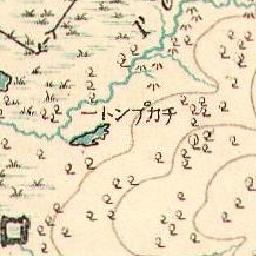 チカプントー